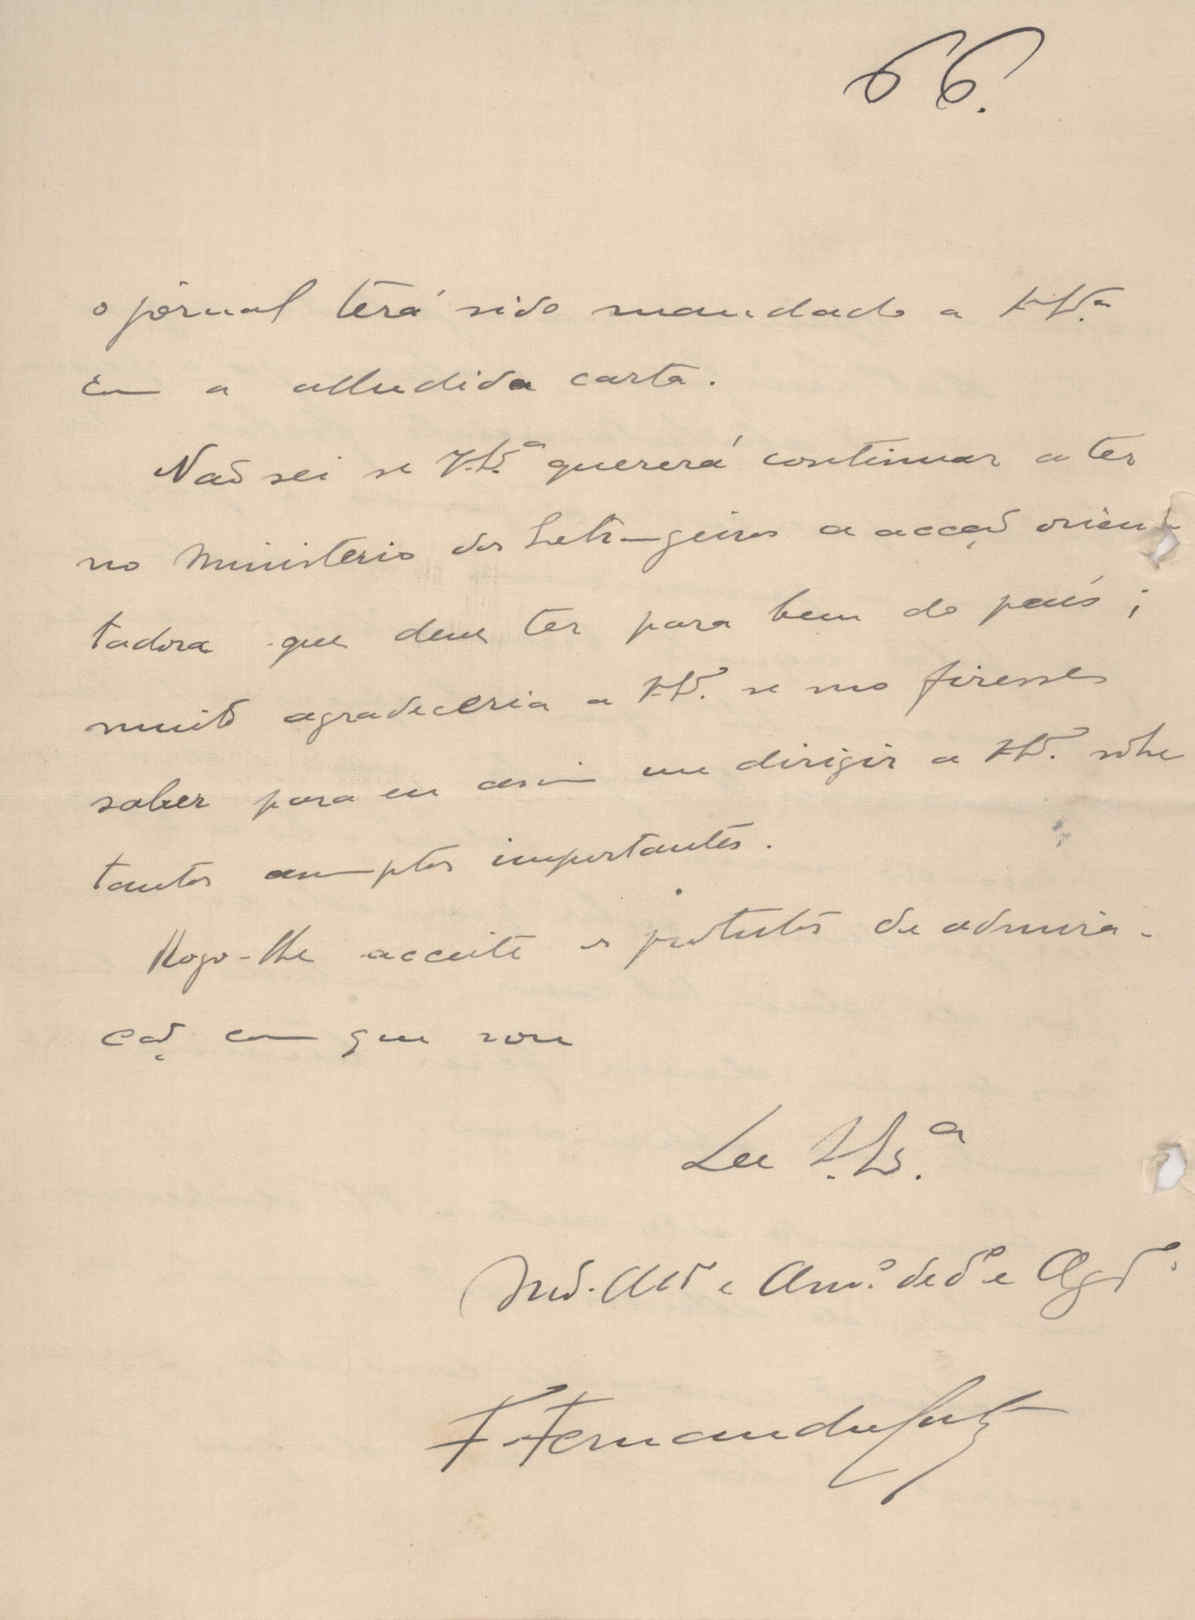 66.
o jornal terá sido mandado a V. Ex.ª
com a alludida carta.
Não sei se V. Ex.ª quererá continuar a ter
no Ministerio dos Estrangeiros a acção orien-
tadora que deve ter para bem do país;
muito agradeceria a V. Ex. se mo fizesse
saber para eu assim me dirigir a V. Ex. sôbre
tantos assumptos importantes.
Rogo-lhe acceite os protestos de admira-
ção com que sou
De V. Ex.ª
e Am.º ded.º e
F. Fernandes